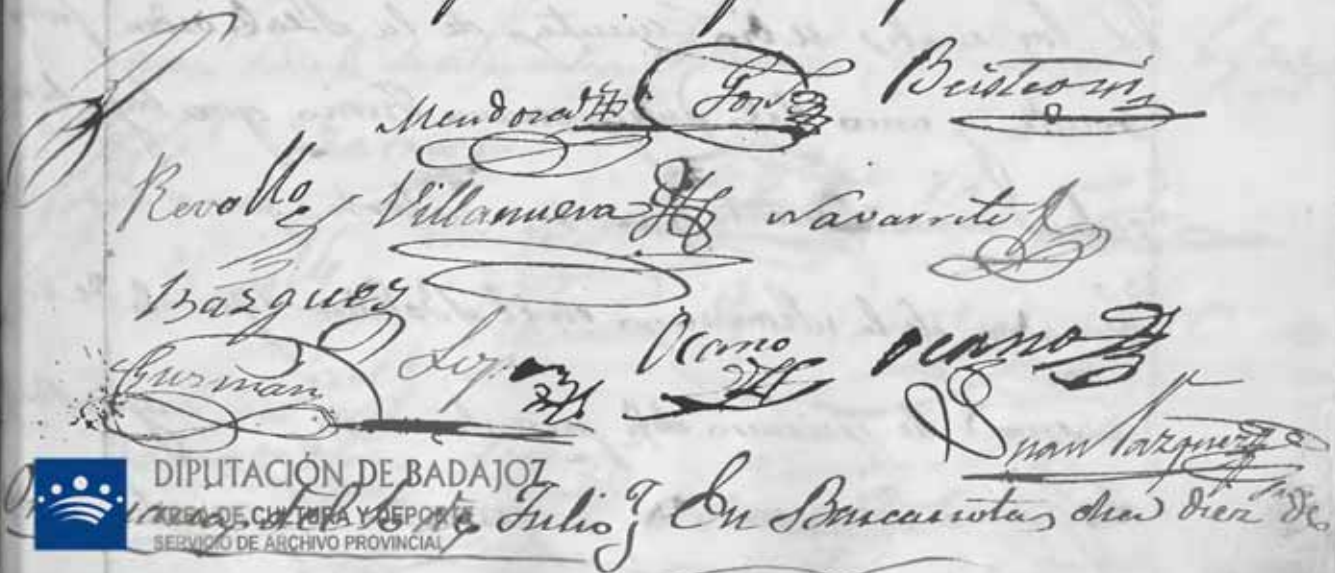 Mendoza
Revollo Villanueva Navarrete
Bazquez
Guzman Lopez Ocano Ocano
Juan Vazquez
DIPUTACIÓN DE BADAJOZ
ÁREA DE CULTURA Y DEPORTE
SERVICIO DE ARCHIVO PROVINCIAL
Julio En Barcarrota dia diez de